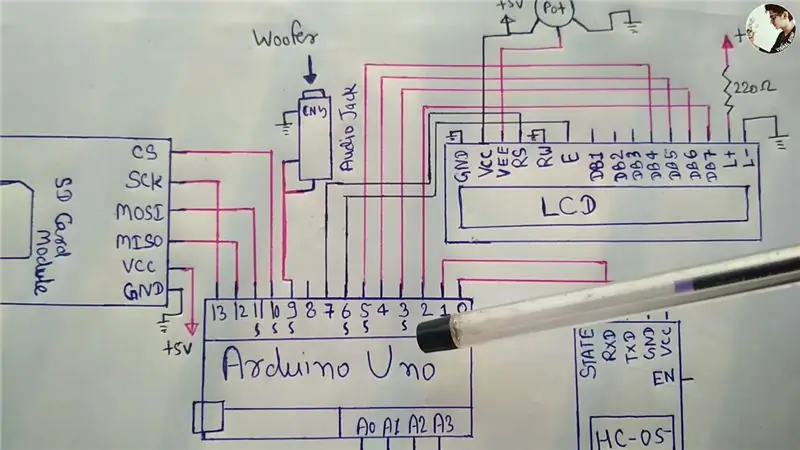 +5V
Pot
Woofer
CN4
Audio Jack
220Ω
CS
SCK
MOSI
MISO
VCC
GND
+5V
SD Card
Module
GND
VCC
VEE
RS
RW
E
DB1
DB2
DB3
DB4
DB5
DB6
DB7
L+
L-
LCD
13 12 11 10 9 8 7 6 5 4 3 2 1 0
S S S S S S
Arduino Uno
A0 A1 A2 A3
STATE
RXD
TXD
GND
VCC
EN
HC-05